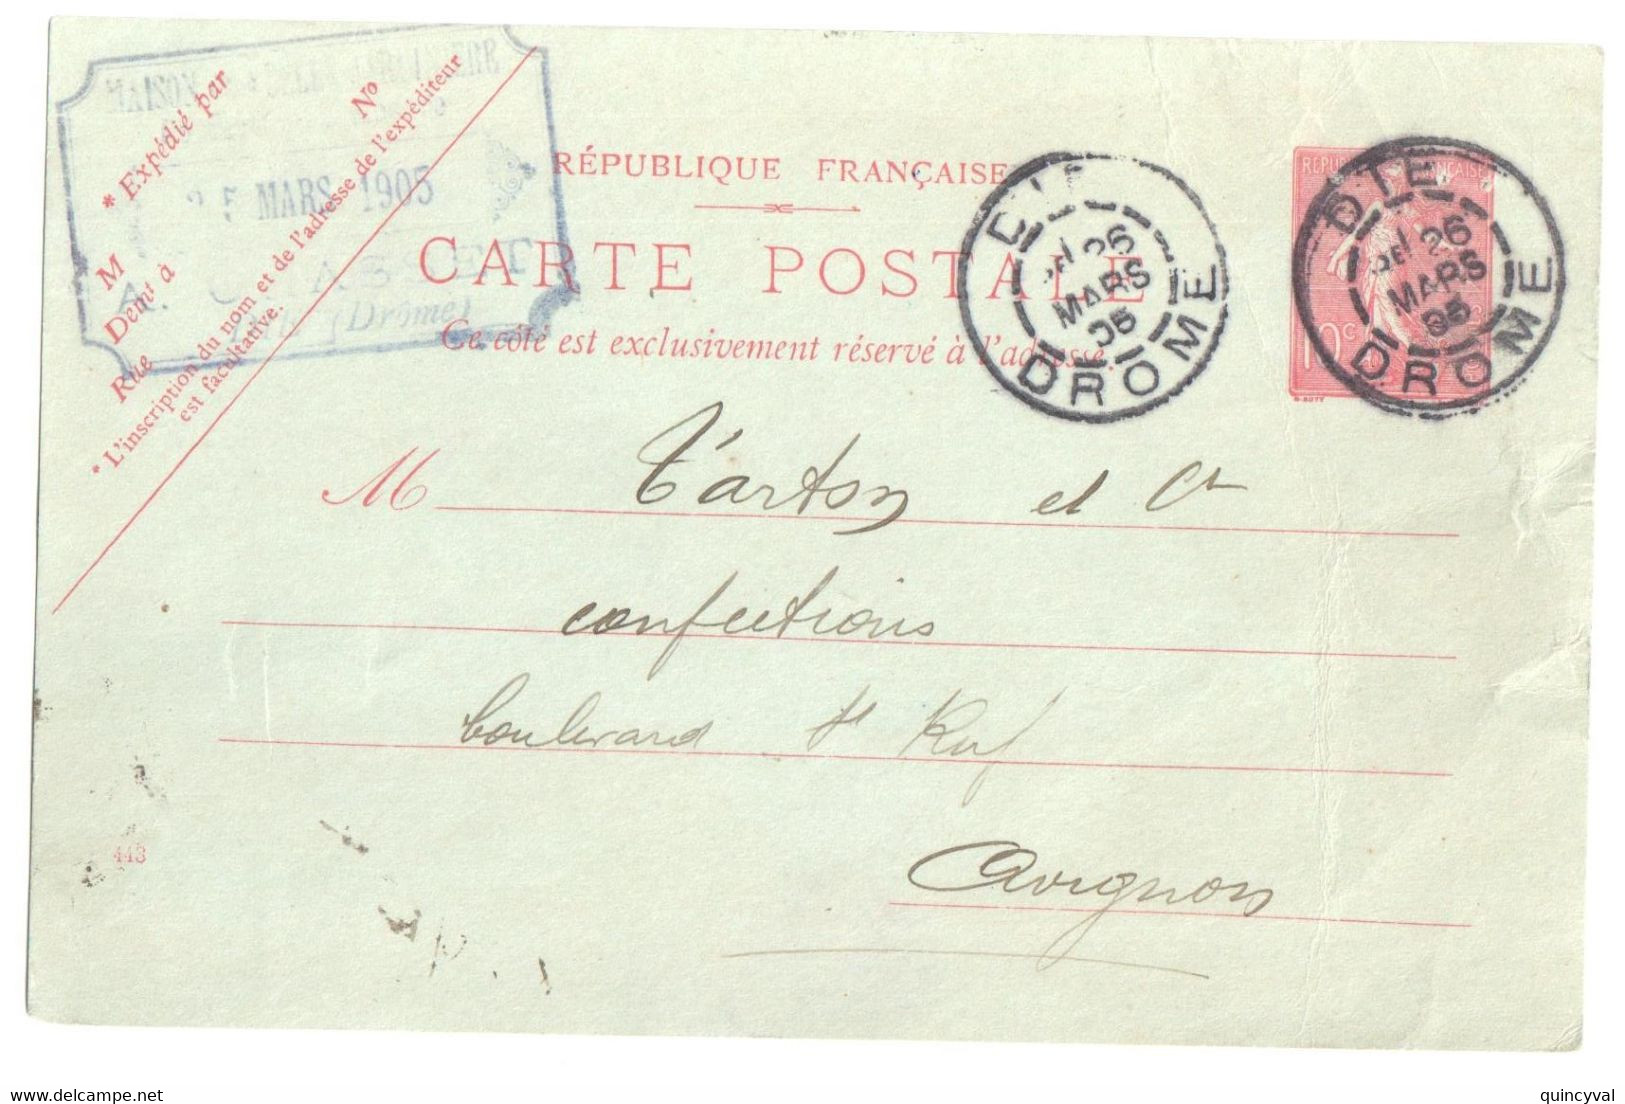 MAISON
* Expédié par
N°
25 MARS 1905
M
Demt à
Rue
(Drôme)
* L'inscription du nom et de l'adresse de l'expéditeur
est facultative.
RÉPUBLIQUE FRANÇAISE
CARTE POSTALE
Ce côté est exclusivement réservé à l'adresse.
DIE
26
MARS
05
DROME
DIE
26
MARS
05
DROME
10 c
M Tarton et Cie
confections
boulevard St Ruf
Avignon
443
delcampe.net
quincyval